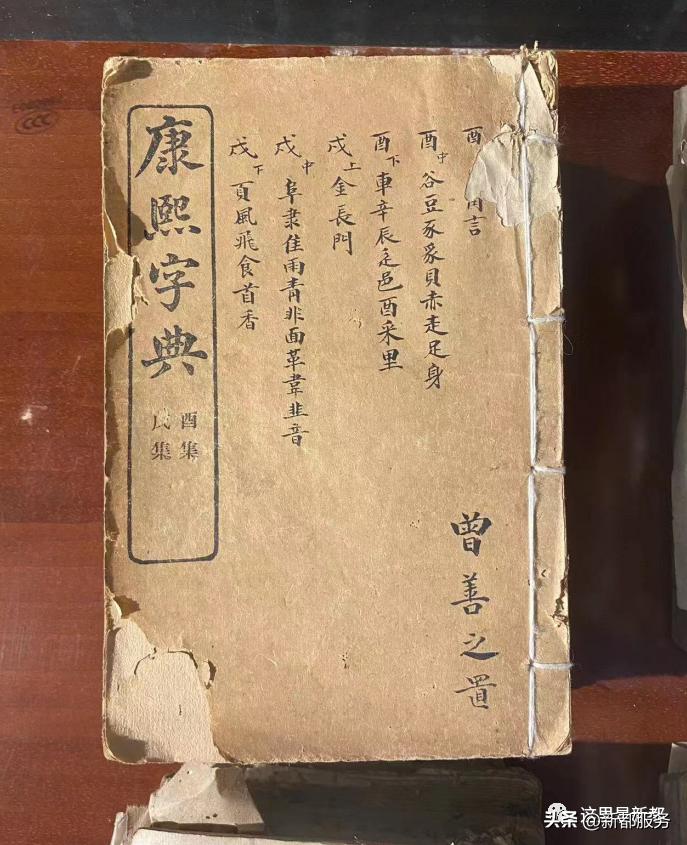 酉角言
酉中谷豆豕豸貝赤走足身
酉下車辛辰辵邑酉采里
戌上金長門
戌中阜隶隹雨青非面革韋韭音
戌下頁風飛食首香
曾善之置
康熙字典
酉集
戌集
这里是新都
头条 @新都服务